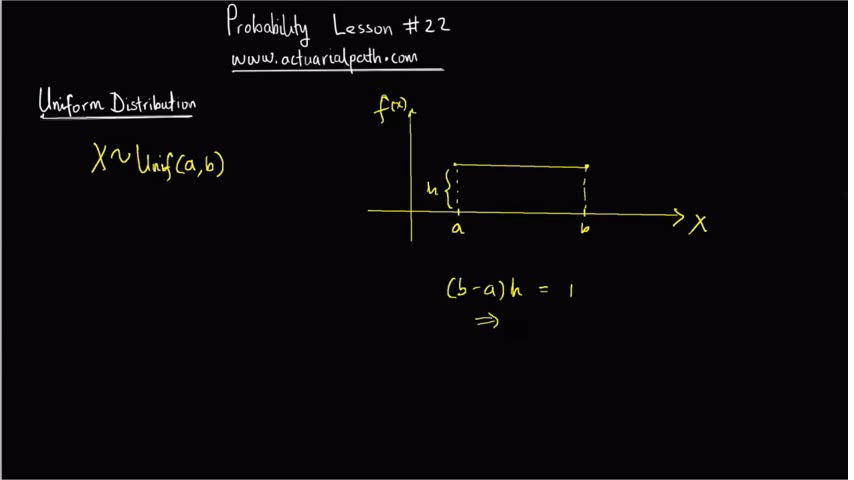 Probability Lesson #22
www.actuarialpath.com
Uniform Distribution
X~Unif(a,b)
f(x)
h
a b
X
(b-a)h = 1
⇒